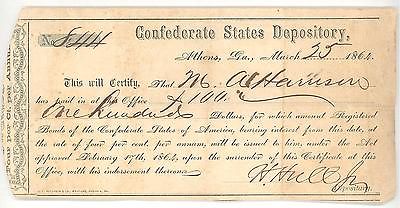 No. 844
Confederate States Depository,
Athens, Ga., March 25 1864.
This will Certify, That M. A. Harrison
has paid in at this Office $100.
One Hundred Dollars, for which amount Registered
Bonds of the Confederate States of America, bearing interest from this date, at
the rate of four per cent. per annum, will be issued, under the Act
approved February 17th, 1864, upon the surrender of this Certificate at this
Office, with his endorsement thereon.
H. Hull Jr
Depositary.
Four per Ct. per Annum